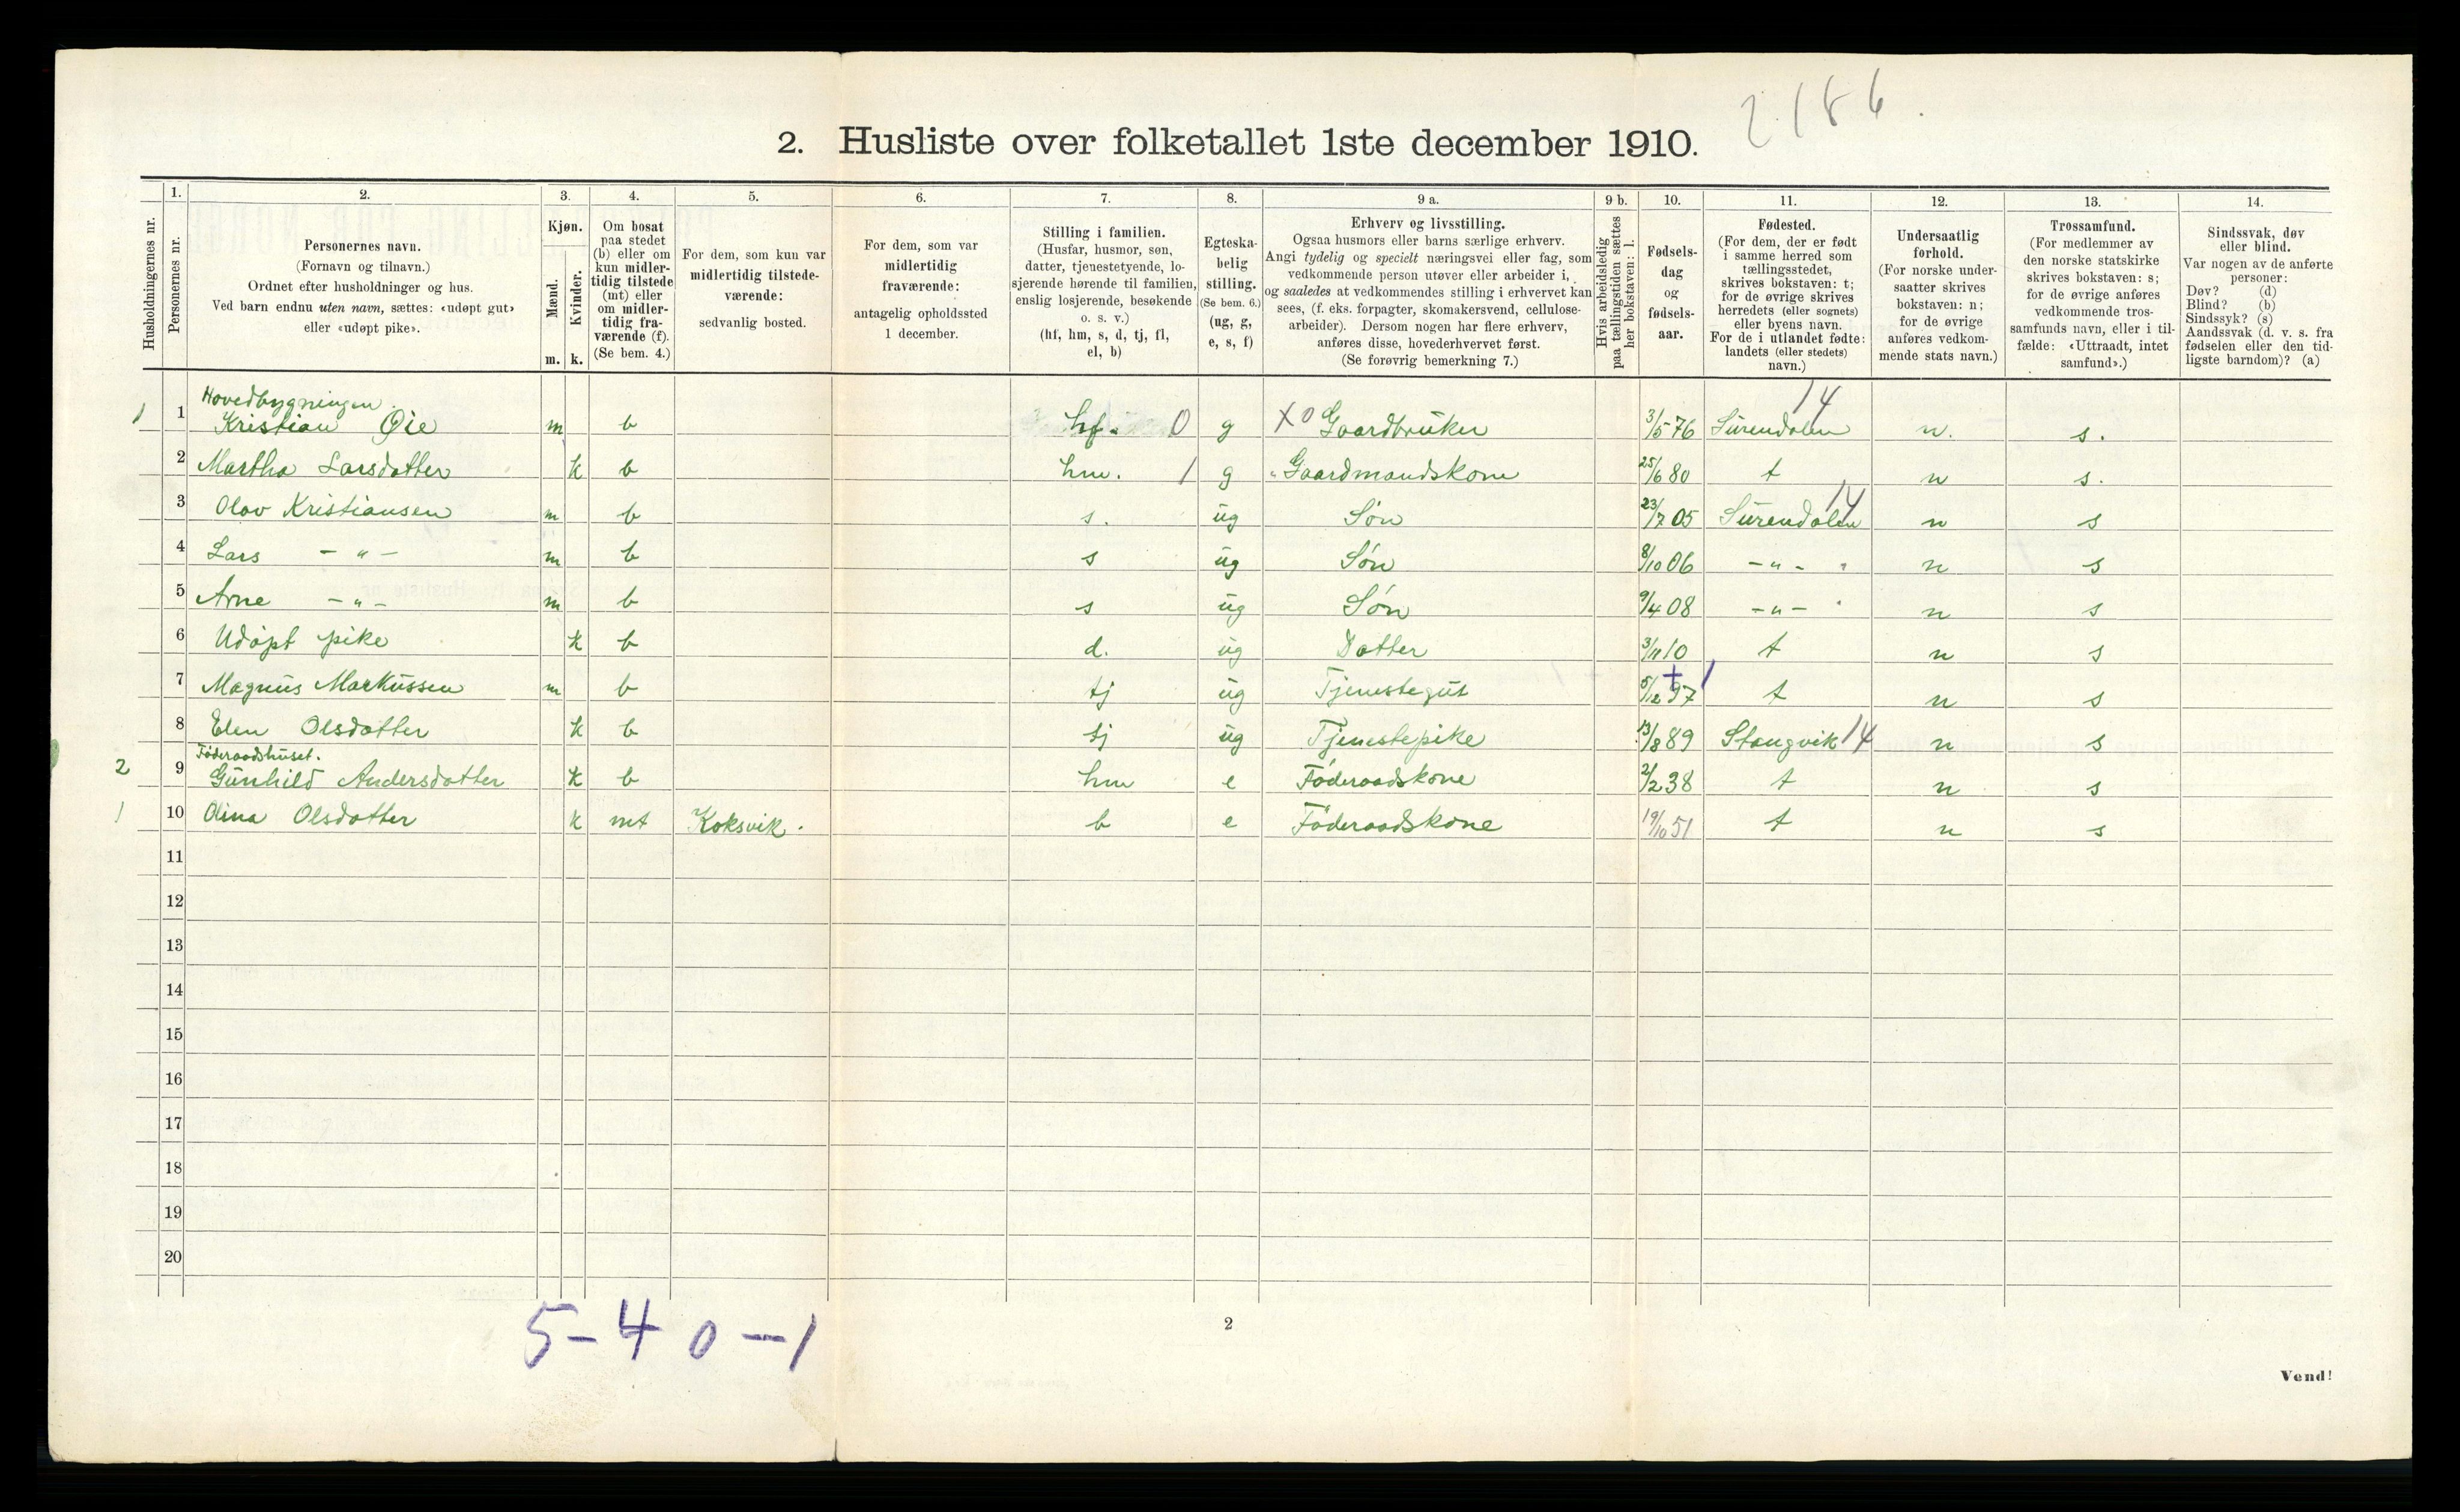 2.186.
2. Husliste over folketallet 1ste december 1910.
Husholdningernes nr.
1.
Personernes nr.
2.
Personernes navn.
(Fornavn og tilnavn.)
Ordnet efter husholdninger og hus.
Ved barn endnu uten navn, sættes: «udøpt gut»
eller «udøpt pike».
3.
Kjøn.
Mænd.
Kvinder.
m. k.
4.
Om bosat
paa stedet
(b) eller om
kun midler-
tidig tilstede
(mt) eller
om midler-
tidig fra-
værende (f).
(Se bem. 4.)
5.
For dem, som kun var
midlertidig tilstede-
værende:
sedvanlig bosted.
6.
For dem, som var
midlertidig
fraværende:
antagelig opholdssted
1 december.
7.
Stilling i familien.
(Husfar, husmor, søn,
datter, tjenestetyende, lo-
sjerende hørende til familien,
enslig losjerende, besøkende
o. s. v.)
(hf, hm, s, d, tj, fl,
el, b)
8.
Egteska-
belig
stilling.
(Se bem. 6.)
(ug, g,
e, s, f)
9 a.
Erhverv og livsstilling.
Ogsaa husmors eller barns særlige erhverv.
Angi tydelig og specielt næringsvei eller fag, som
vedkommende person utøver eller arbeider i,
og saaledes at vedkommendes stilling i erhvervet kan
sees, (f. eks. forpagter, skomakersvend, cellulose-
arbeider). Dersom nogen har flere erhverv,
anføres disse, hovederhvervet først.
(Se forøvrig bemerkning 7.)
9 b.
Hvis arbeidsledig
paa tællingstiden sættes
her bokstaven: l.
10.
Fødsels-
dag
og
fødsels-
aar.
11.
Fødested.
(For dem, der er født
i samme herred som
tællingsstedet,
skrives bokstaven: t;
for de øvrige skrives
herredets (eller sognets)
eller byens navn.
For de i utlandet fødte:
landets (eller stedets)
navn.)
12.
Undersaatlig
forhold.
(For norske under-
saatter skrives
bokstaven: n;
for de øvrige
anføres vedkom-
mende stats navn.)
13.
Trossamfund.
(For medlemmer av
den norske statskirke
skrives bokstaven: s;
for de øvrige anføres
vedkommende tros-
samfunds navn, eller i til-
fælde: «Uttraadt, intet
samfund».)
14.
Sindssvak, døv
eller blind.
Var nogen av de anførte
personer:
Døv? (d)
Blind? (b)
Sindssyk? (s)
Aandssvak (d. v. s. fra
fødselen eller den tid-
ligste barndom)? (a)
Hovedbygningen. 14
1 1 Kristian Øie m b hf. 0 g X0 Gaardbruker 3/5 76 Surendalen n. s.
2 Martha Larsdatter k b hm. 1 g "Gaardmandskone 25/6 80 t n s.
3 Olav Kristiansen m b s. ug Søn 23/7 05 Surendalen 14 n s
4 Lars - " - m b s ug Søn 8/10 06 - " - n s
5 Arne - " - m b s ug Søn 9/4 08 - " - n s
6 Udøpt pike k b d. ug Datter 3/11 10 t n s
7 Magnus Markussen m b tj ug Tjenestegut 5/12 97 + 1 t n s
8 Elen Olsdatter k b tj ug Tjenestepike 13/8 89 Stangvik 14 n s
Føderaadshuset.
2 9 Gunhild Andersdatter k b hm e Føderaadskone 2/2 38 t n s
1 10 Olina Olsdatter k mt Koksvik. b e Føderaadskone 19/10 51 t n s
11
12
13
14
15
16
17
18
19
20
5-4 0-1
2
Vend!